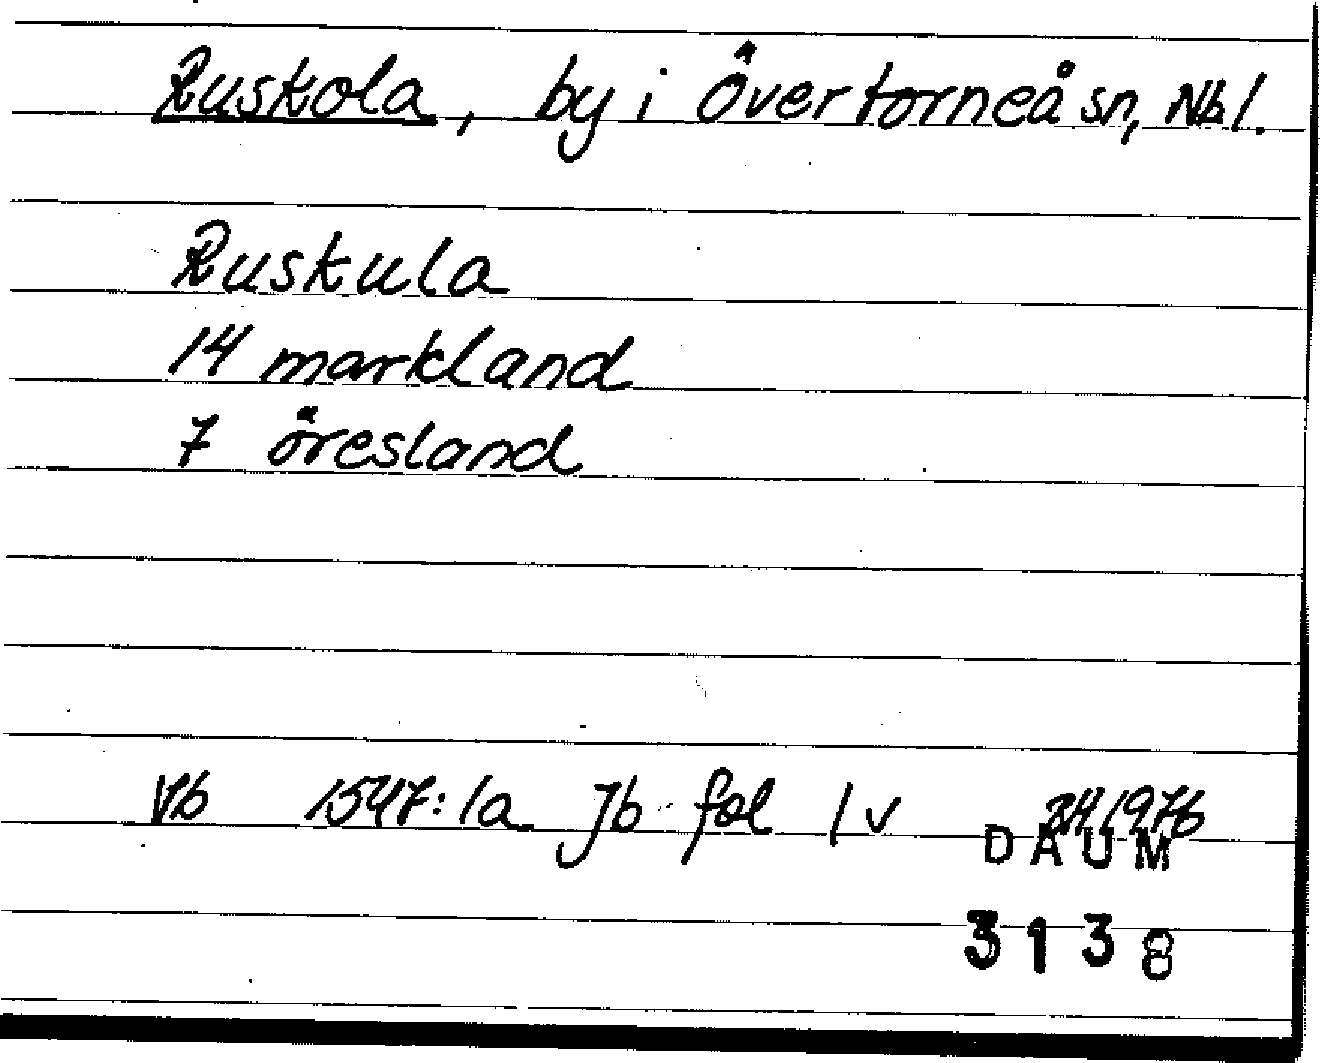 Ruskola, by i Övertorneå sn, Nbl.
Ruskula
14 markland
7 öresland
Vb 1547:1a Jb fol 1 v 1976
DAUM
3138